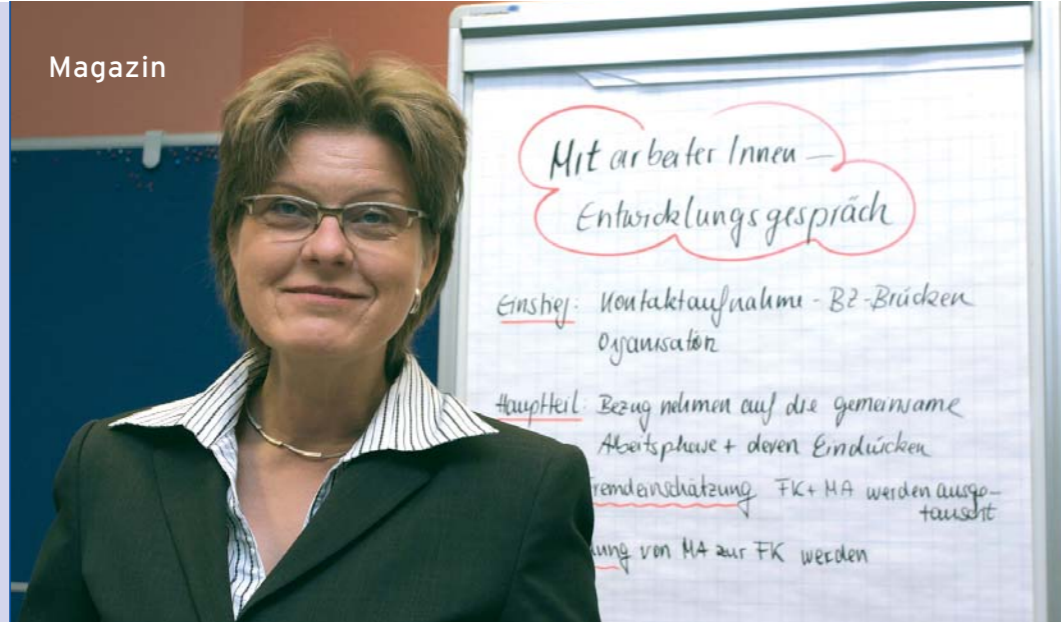 Magazin
MitarbeiterInnen –
Entwicklungsgespräch
Einstieg: Kontaktaufnahme - BZ-Brücken
Organisation
Hauptteil: Bezug nehmen auf die gemeinsame
Arbeitsphase + deren Eindrücken
Fremdeinschätzung FK + MA werden ausge-
tauscht
von MA zur FK werden